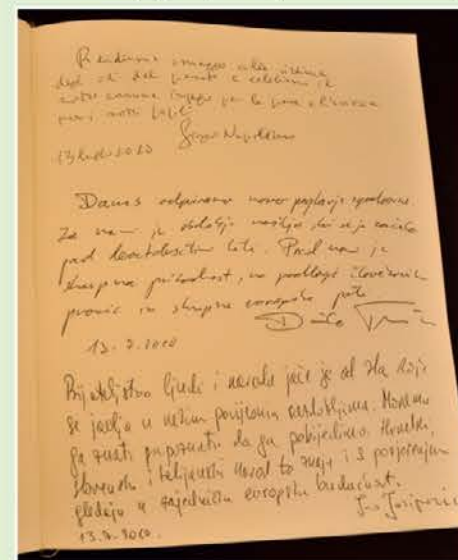 Rendiamo omaggio alle vittime
degli odi del passato e celebriamo il
nostro comune impegno per la pace e l'unione
nostri popoli
Giorgio Napolitano
13 luglio 2010
Danes odpiramo novo poglavje
Za nami je obdobje nasilja ki se je začelo
pred devetdesetimi leti. Pred nami je
skupna prihodnost, na podlagi človekovih
pravic in skupne evropske poti
Danilo Türk
13. 7. 2010
Prijateljstvo ljudi i naroda jače je od zla koje
se javlja u nekim povijesnim razdobljima. Moramo
ga znati prepoznati da ga pobijedimo. Hrvatski,
slovenski i talijanski narod to znaju i s povjerenjem
gledaju u zajedničku europsku budućnost.
Ivo Josipović
13. 7. 2010.